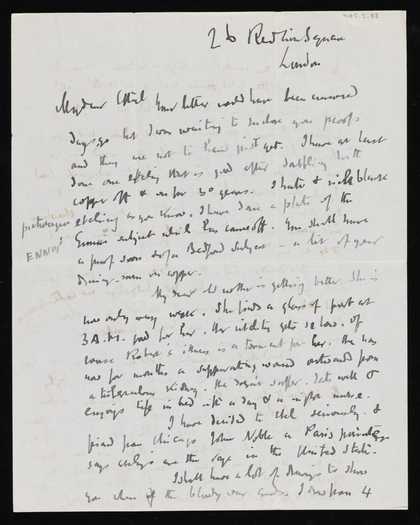 26 Red Lion Square
London
My dear Ethel Your letter would have been answered
days ago but I was waiting to enclose you proofs
and they are not to hand just yet. I have at last
done one etching that is good after dabbling with
copper off & on for 30 years. I hate
etching as you know. I have done a plate of the
Ennor subject which has come off. You shall have
a proof soon
picturesque
ENNOR
on copper.
My dear old mother is getting better. She is
now only very weak. She finds a glass of port at
3 A.M. good for her. Her vitality gets so low. Of
course Robert's illness is a torment for her. He has
now for months a suppurating wound outward from
a tuberculous kidney. He doesn't suffer. Eats well &
enjoys life in bed with a day & a night nurse.
I have decided to etch seriously. A
friend from Chicago John Noble a Paris
says etchings are the rage in the United States.
I shall have a lot of drawings to show
you when the bloody war ends. I draw from 4